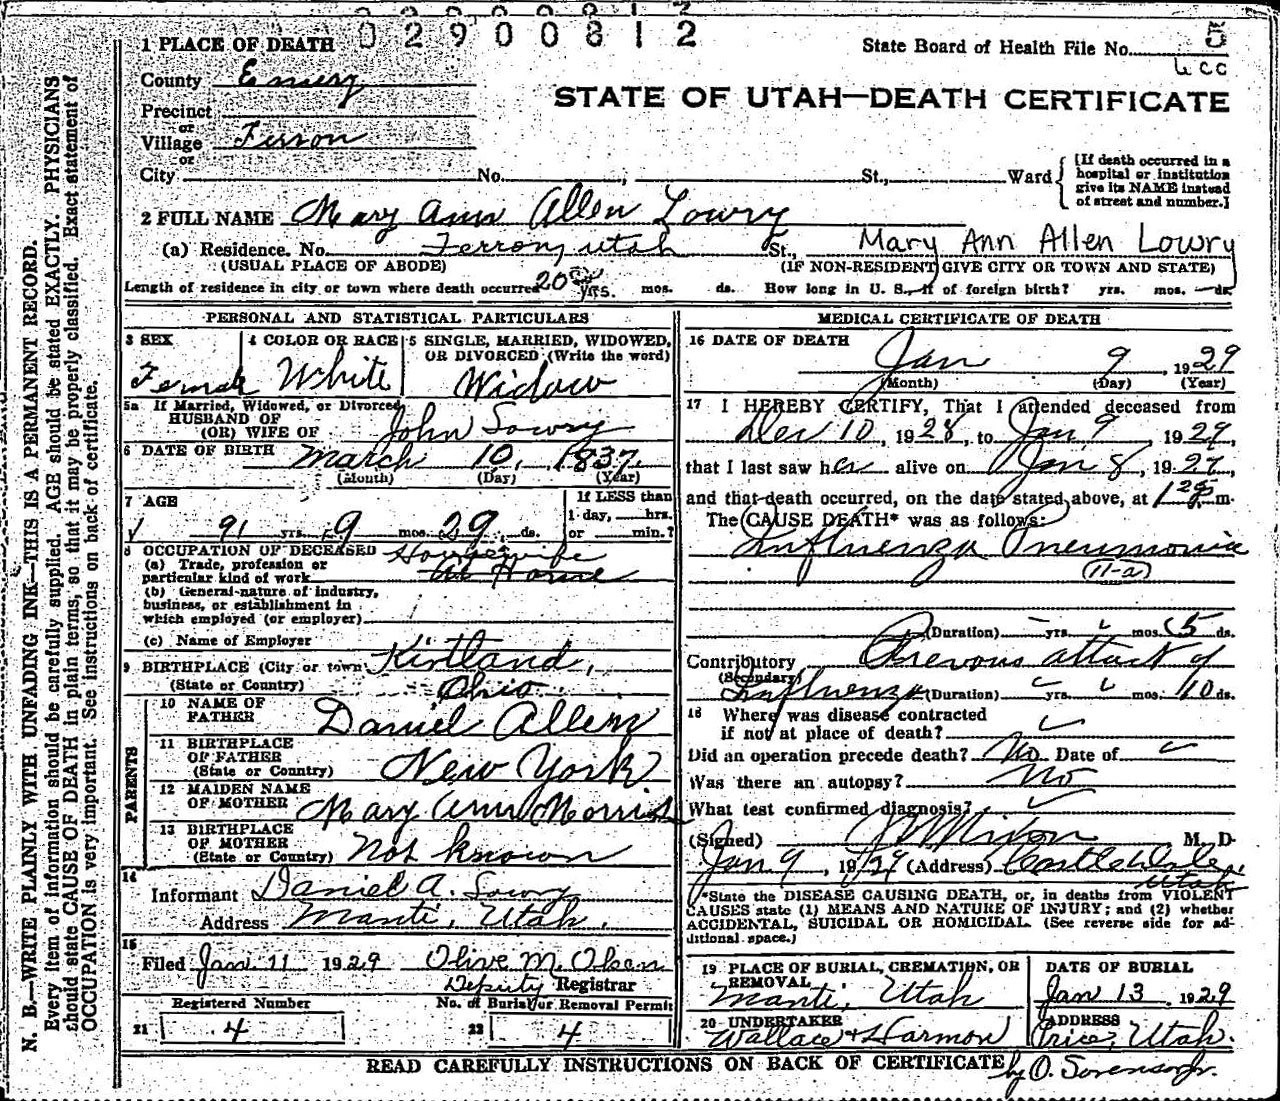 02900812
State Board of Health File No. 5
STATE OF UTAH—DEATH CERTIFICATE
1 PLACE OF DEATH
County Emery
Precinct
or
Village Ferron
or
City No. , St., Ward
[If death occurred in a
hospital or institution
give its NAME instead
of street and number.]
2 FULL NAME Mary Ann Allen Lowry
(a) Residence. No. Ferron, Utah St., Mary Ann Allen Lowry
(USUAL PLACE OF ABODE) (IF NON-RESIDENT GIVE CITY OR TOWN AND STATE)
Length of residence in city or town where death occurred 20 yrs. mos. ds. How long in U. S., if of foreign birth? yrs. mos. ds.
PERSONAL AND STATISTICAL PARTICULARS
3 SEX
Female
4 COLOR OR RACE
White
5 SINGLE, MARRIED, WIDOWED,
OR DIVORCED (Write the word)
Widow
5a If Married, Widowed, or Divorced
HUSBAND OF
(OR) WIFE OF John Lowry
6 DATE OF BIRTH March 10, 1837
(Month) (Day) (Year)
7 AGE
91 yrs. 9 mos. 29 ds.
If LESS than
1 day, hrs.
or min.?
8 OCCUPATION OF DECEASED Housewife
(a) Trade, profession or
particular kind of work At Home
(b) General nature of industry,
business, or establishment in
which employed (or employer)
(c) Name of Employer
9 BIRTHPLACE (City or town) Kirtland,
(State or Country) Ohio
PARENTS
10 NAME OF
FATHER Daniel Allen
11 BIRTHPLACE
OF FATHER
(State or Country) New York
12 MAIDEN NAME
OF MOTHER Mary Ann Morris
13 BIRTHPLACE
OF MOTHER
(State or Country) Not known
14
Informant Daniel A. Lowry
Address Manti, Utah.
15
Filed Jan. 11 1929 Olive M. Olsen
Deputy Registrar
Registered Number No. of Burial or Removal Permit
21 4 22 4
MEDICAL CERTIFICATE OF DEATH
16 DATE OF DEATH
Jan 9, 1929
(Month) (Day) (Year)
17 I HEREBY CERTIFY, That I attended deceased from
Dec 10, 1928, to Jan 9, 1929,
that I last saw her alive on Jan 8, 1929,
and that death occurred, on the date stated above, at m.
The CAUSE DEATH* was as follows:
Influenza Pneumonia
(11-a)
(Duration) yrs. mos. 5 ds.
Contributory Prevous attack of
(Secondary)
Influenza (Duration) yrs. mos. 10 ds.
18 Where was disease contracted
if not at place of death?
Did an operation precede death? No Date of
Was there an autopsy? No
What test confirmed diagnosis?
(Signed) Nixon M. D.
Jan 9, 1929 (Address) Castle Dale,
Utah
*State the DISEASE CAUSING DEATH, or, in deaths from VIOLENT
CAUSES state (1) MEANS AND NATURE OF INJURY; and (2) whether
ACCIDENTAL, SUICIDAL OR HOMICIDAL. (See reverse side for ad-
ditional space.)
19 PLACE OF BURIAL, CREMATION, OR
REMOVAL
Manti, Utah
DATE OF BURIAL
Jan 13, 1929
20 UNDERTAKER
Wallace & Harmon
ADDRESS
Price, Utah.
READ CAREFULLY INSTRUCTIONS ON BACK OF CERTIFICATE by O. Sorenson Jr.
N. B.—WRITE PLAINLY WITH UNFADING INK—THIS IS A PERMANENT RECORD.
Every item of information should be carefully supplied. AGE should be stated EXACTLY. PHYSICIANS
should state CAUSE OF DEATH in plain terms, so that it may be properly classified. Exact statement of
OCCUPATION is very important. See instructions on back of certificate.